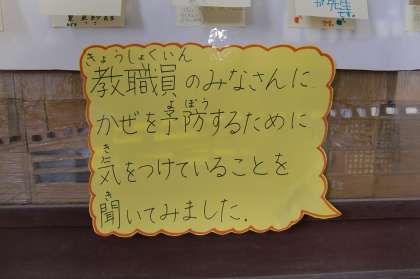 きょうしょくいん
教職員のみなさんに
よぼう
かぜを予防するために
き
気をつけていることを
き
聞いてみました.